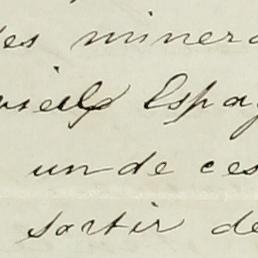 des minera
vieille Espag
un de ces
sortir de